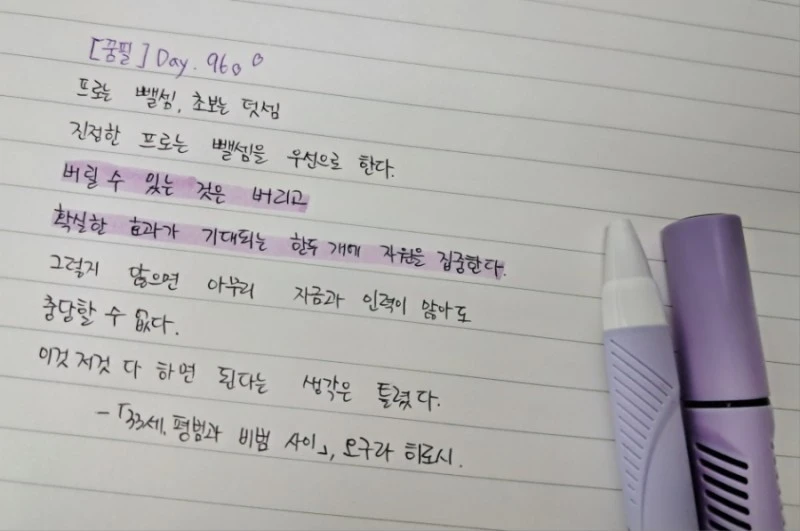 [꿈필] Day. 960
프로는 뺄셈, 초보는 덧셈
진접한 프로는 뺄셈을 우선으로 한다.
버릴 수 있는 것은 버리고
확실한 효과가 기대되는 한두 개에 자원을 집중한다.
그렇지 않으면 아무리 자금과 인력이 많아도
충당할 수 없다.
이것저것 다 하면 된다는 생각은 틀렸다.
-「33세, 평범과 비범 사이」, 오구라 히로시.